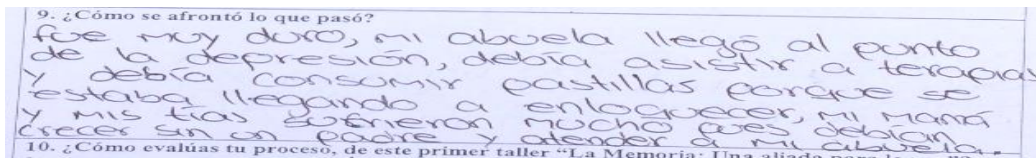 9. ¿Cómo se afrontó lo que pasó?
fue muy duro, mi abuela llegó al punto
de la depresión, debía asistir a terapias
y debía consumir pastillas porque se
estaba llegando a enloquecer, mi mamá
y mis tías sufrieron mucho pues debían
crecer sin un padre y atender a mi abuela.
10. ¿Cómo evalúas tu proceso, de este primer taller “La Memoria: Una aliada para